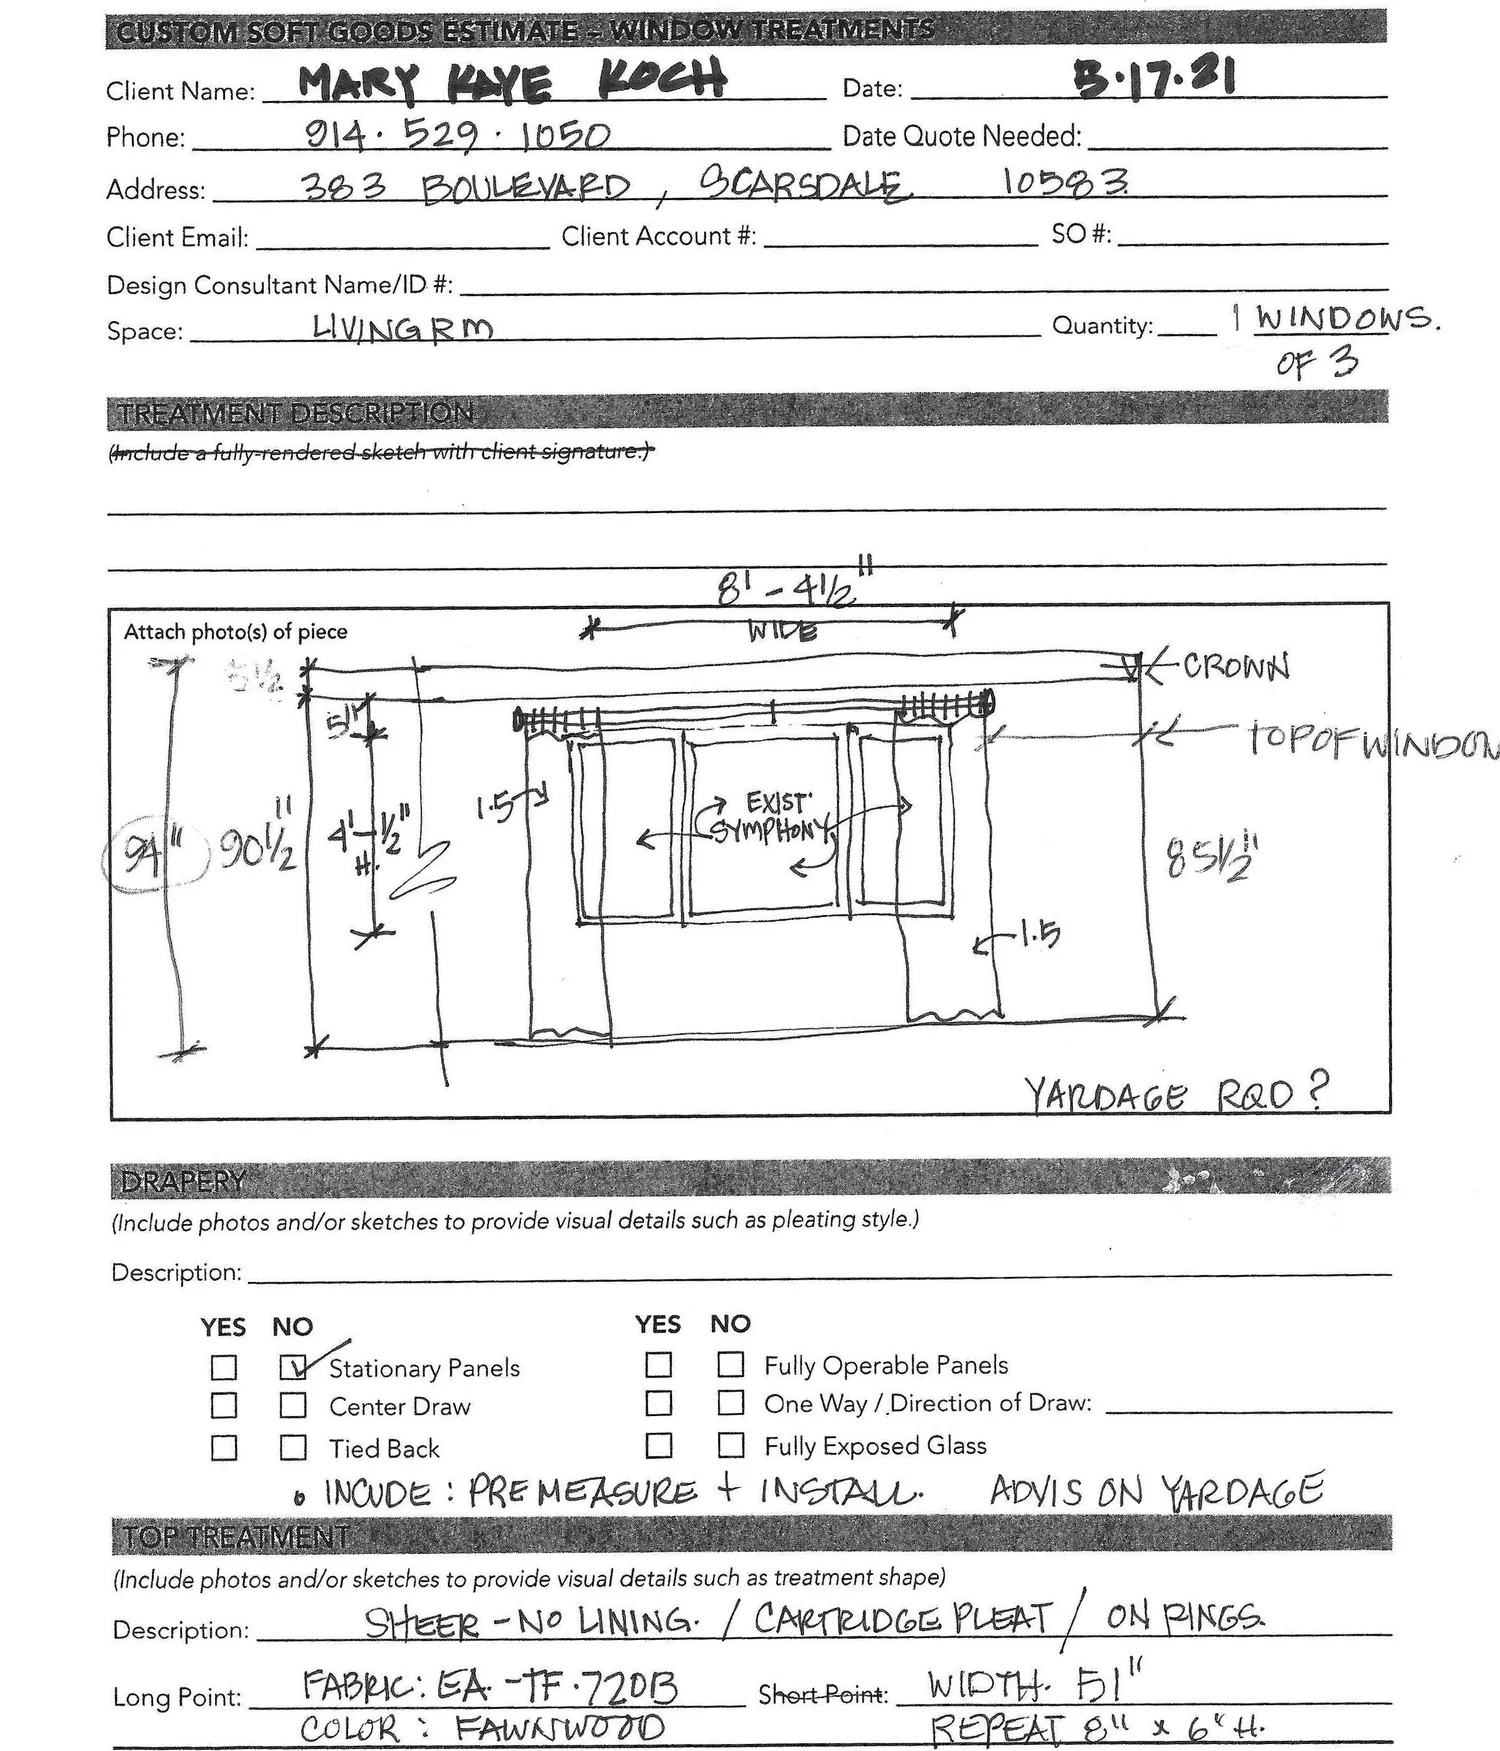 CUSTOM SOFT GOODS ESTIMATE – WINDOW TREATMENTS
Client Name: MARY KAYE KOCH Date: 5·17·21
Phone: 914·529·1050 Date Quote Needed:
Address: 383 BOULEVARD, SCARSDALE 10583
Client Email: Client Account #: SO #:
Design Consultant Name/ID #:
Space: LIVING RM Quantity: 1 WINDOWS.
OF 3
TREATMENT DESCRIPTION
(Include a fully-rendered sketch with client signature.)
8' - 4 1/2"
Attach photo(s) of piece
WIDE
5 1/2
CROWN
5"
TOP OF WINDOW
1.5
EXIST'
SYMPHONY
94"
90 1/2"
4'-1/2"
H.
85 1/2"
1.5
YARDAGE RQD?
DRAPERY
(Include photos and/or sketches to provide visual details such as pleating style.)
Description:
YES NO YES NO
Stationary Panels Fully Operable Panels
Center Draw One Way / Direction of Draw:
Tied Back Fully Exposed Glass
• INCUDE: PREMEASURE + INSTALL. ADVIS ON YARDAGE
TOP TREATMENT
(Include photos and/or sketches to provide visual details such as treatment shape)
Description: SHEER - NO LINING. / CARTRIDGE PLEAT / ON RINGS.
Long Point: FABRIC: EA. - TF·720B Short Point: WIDTH. 51"
COLOR: FAWNWOOD REPEAT 8" x 6" H.